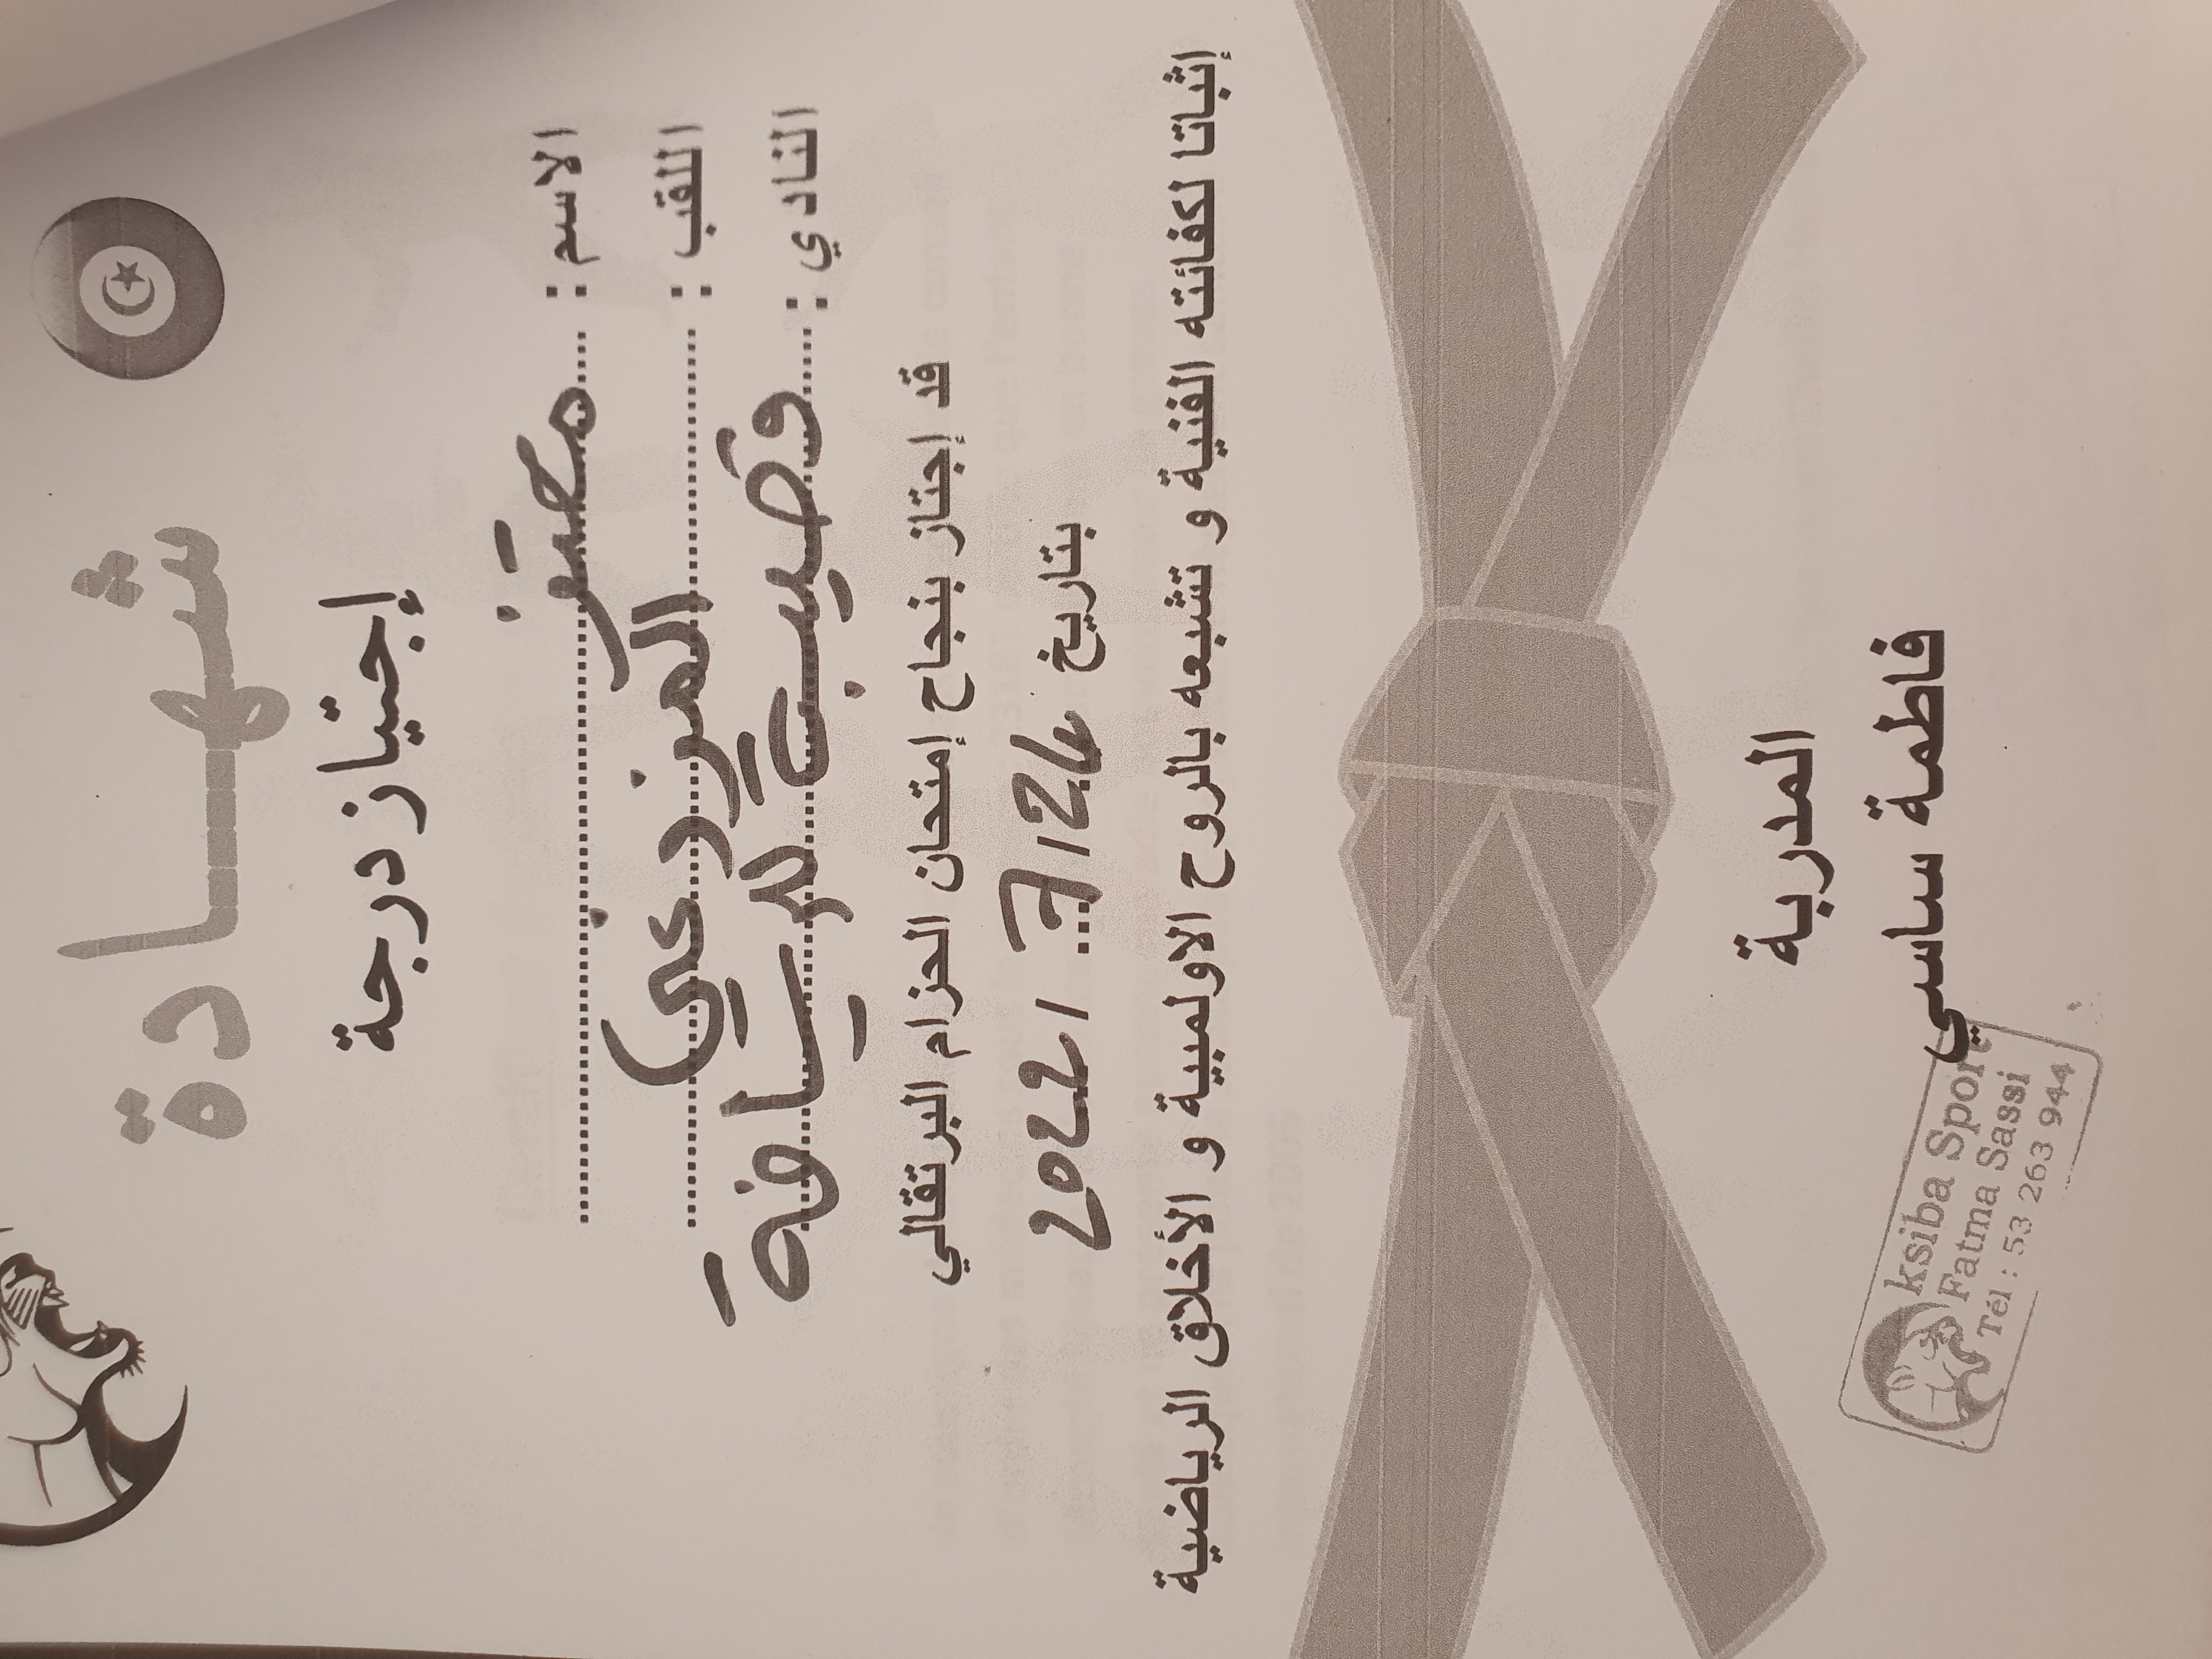 شهادة
إجتياز درجة
الاسم : معتز
اللقب : المزدغي
النادي : قصيبة للرياضة
قد إجتاز بنجاح إمتحان الحزام البرتقالي
بتاريخ 24/7/2022
إثباتا لكفائته الفنية و تشبعه بالروح الاولمبية و الأخلاق الرياضية
المدربة
فاطمة ساسي
ksiba Sport
Fatma Sassi
Tél : 53 263 944